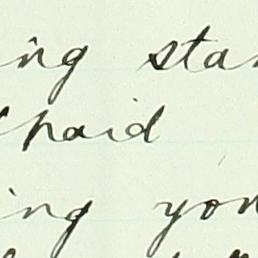 ing sta
paid
ing yon